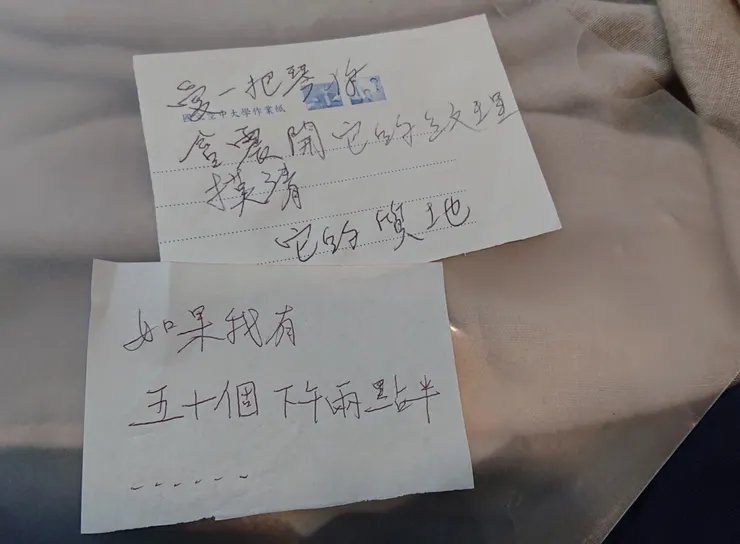 愛一把琴 你
國立空中大學作業紙
會震開它的紋理
摸清
它的質地
如果我有
五十個下午兩點半
......